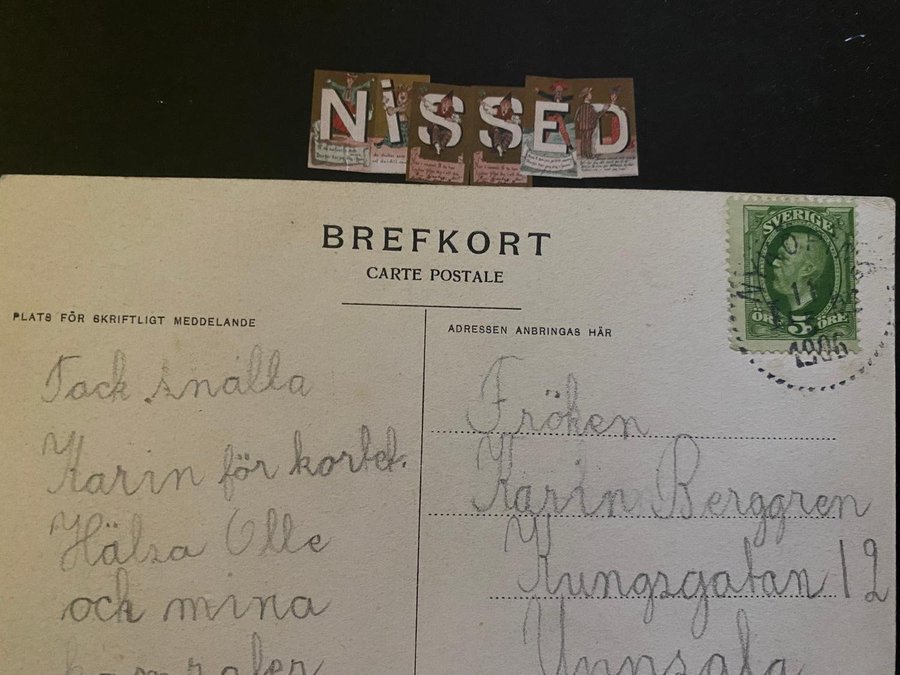 NiSSED
BREFKORT
CARTE POSTALE
SVERIGE
ÖRE 5 ÖRE
11
1906
PLATS FÖR SKRIFTLIGT MEDDELANDE
Tack snälla
Karin för kortet.
Hälsa Olle
och mina
kamrater
ADRESSEN ANBRINGAS HÄR
Fröken
Karin Berggren
Kungsgatan 12
Uppsala